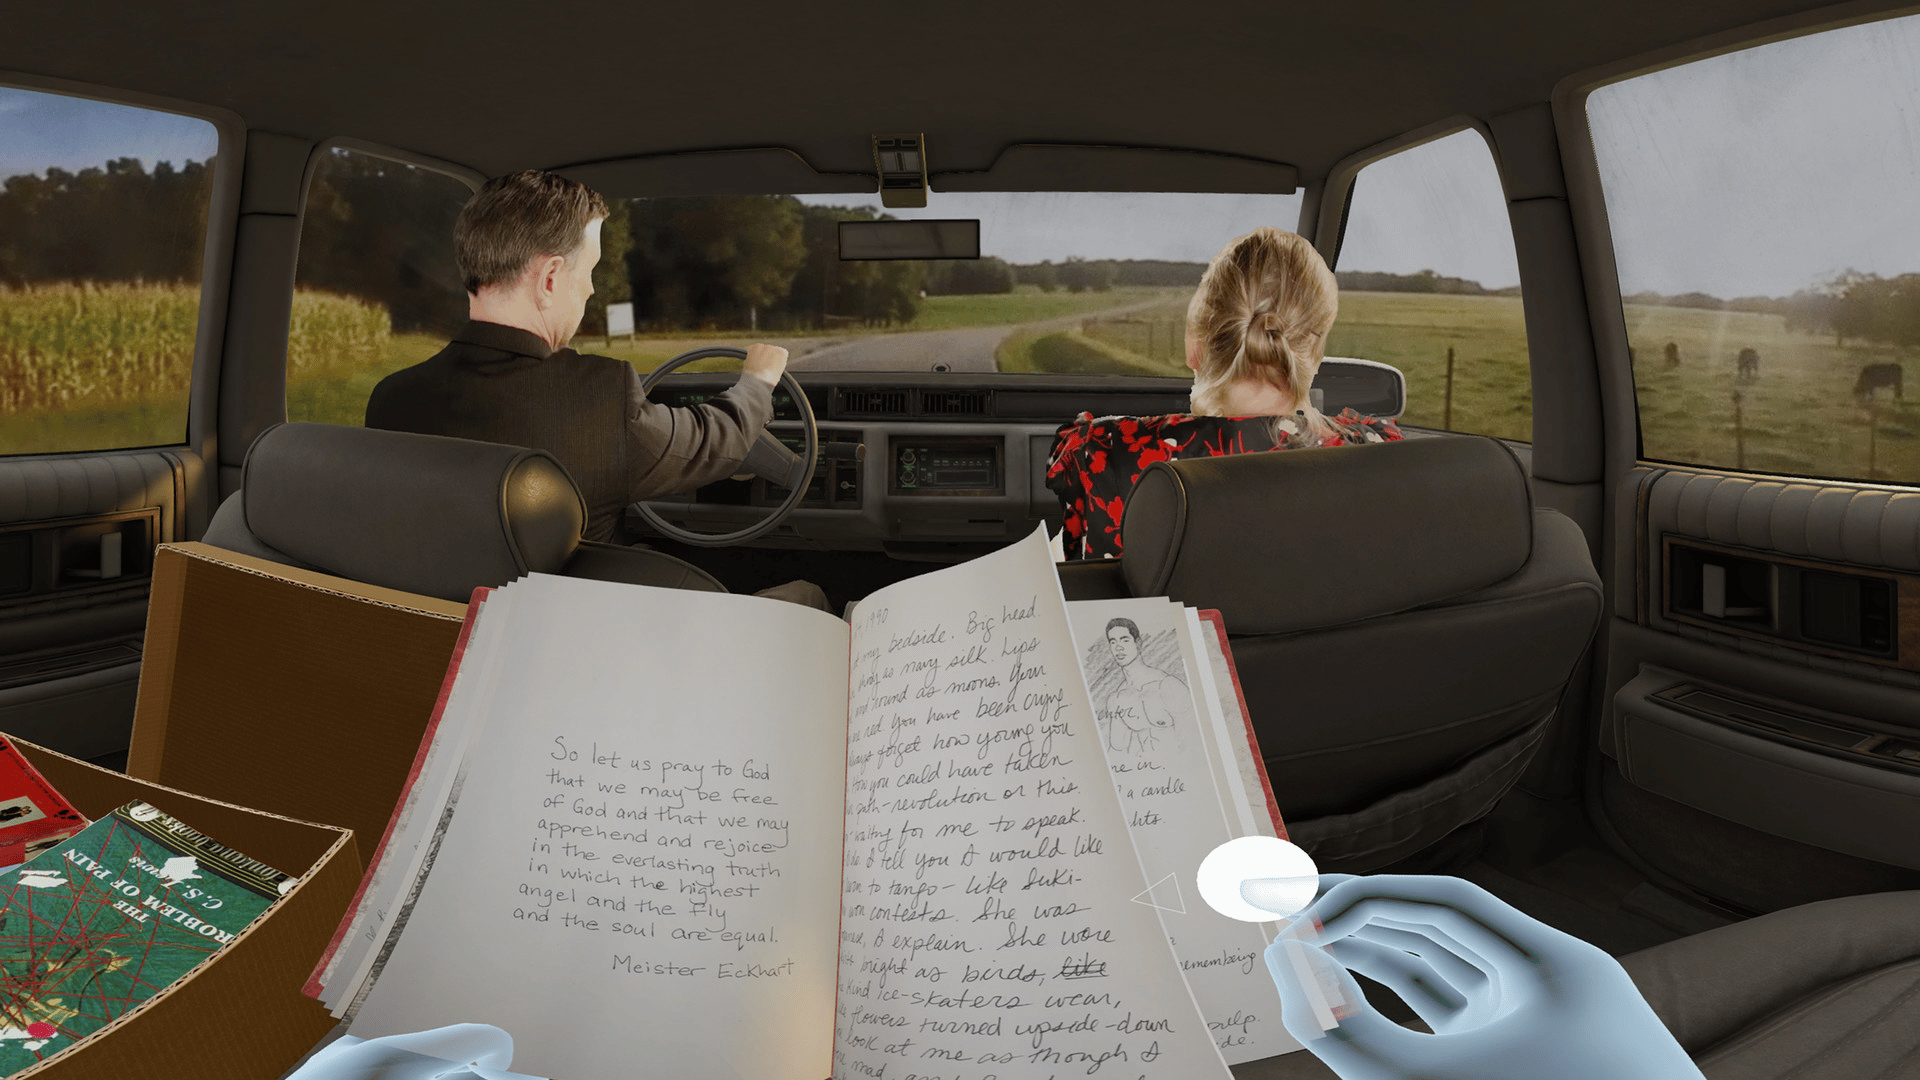 So let us pray to God
that we may be free
of God and that we may
apprehend and rejoice
in the everlasting truth
in which the highest
angel and the fly
and the soul are equal.
Meister Eckhart
1990
my bedside. Big head.
as navy silk. Lips
round as moons. Your
red you have been crying.
forget how young you
How you could have taken
path-revolution or this.
waiting for me to speak.
I tell you I would like
to tango - like Suki-
won contests. She was
I explain. She wore
bright as birds, like
kind ice-skaters wear,
flowers turned upside-down
look at me as though I
mad, and
enter.
in.
a candle
remembering
pulp.
THE
PROBLEM OF PAIN
C. S. Lewis